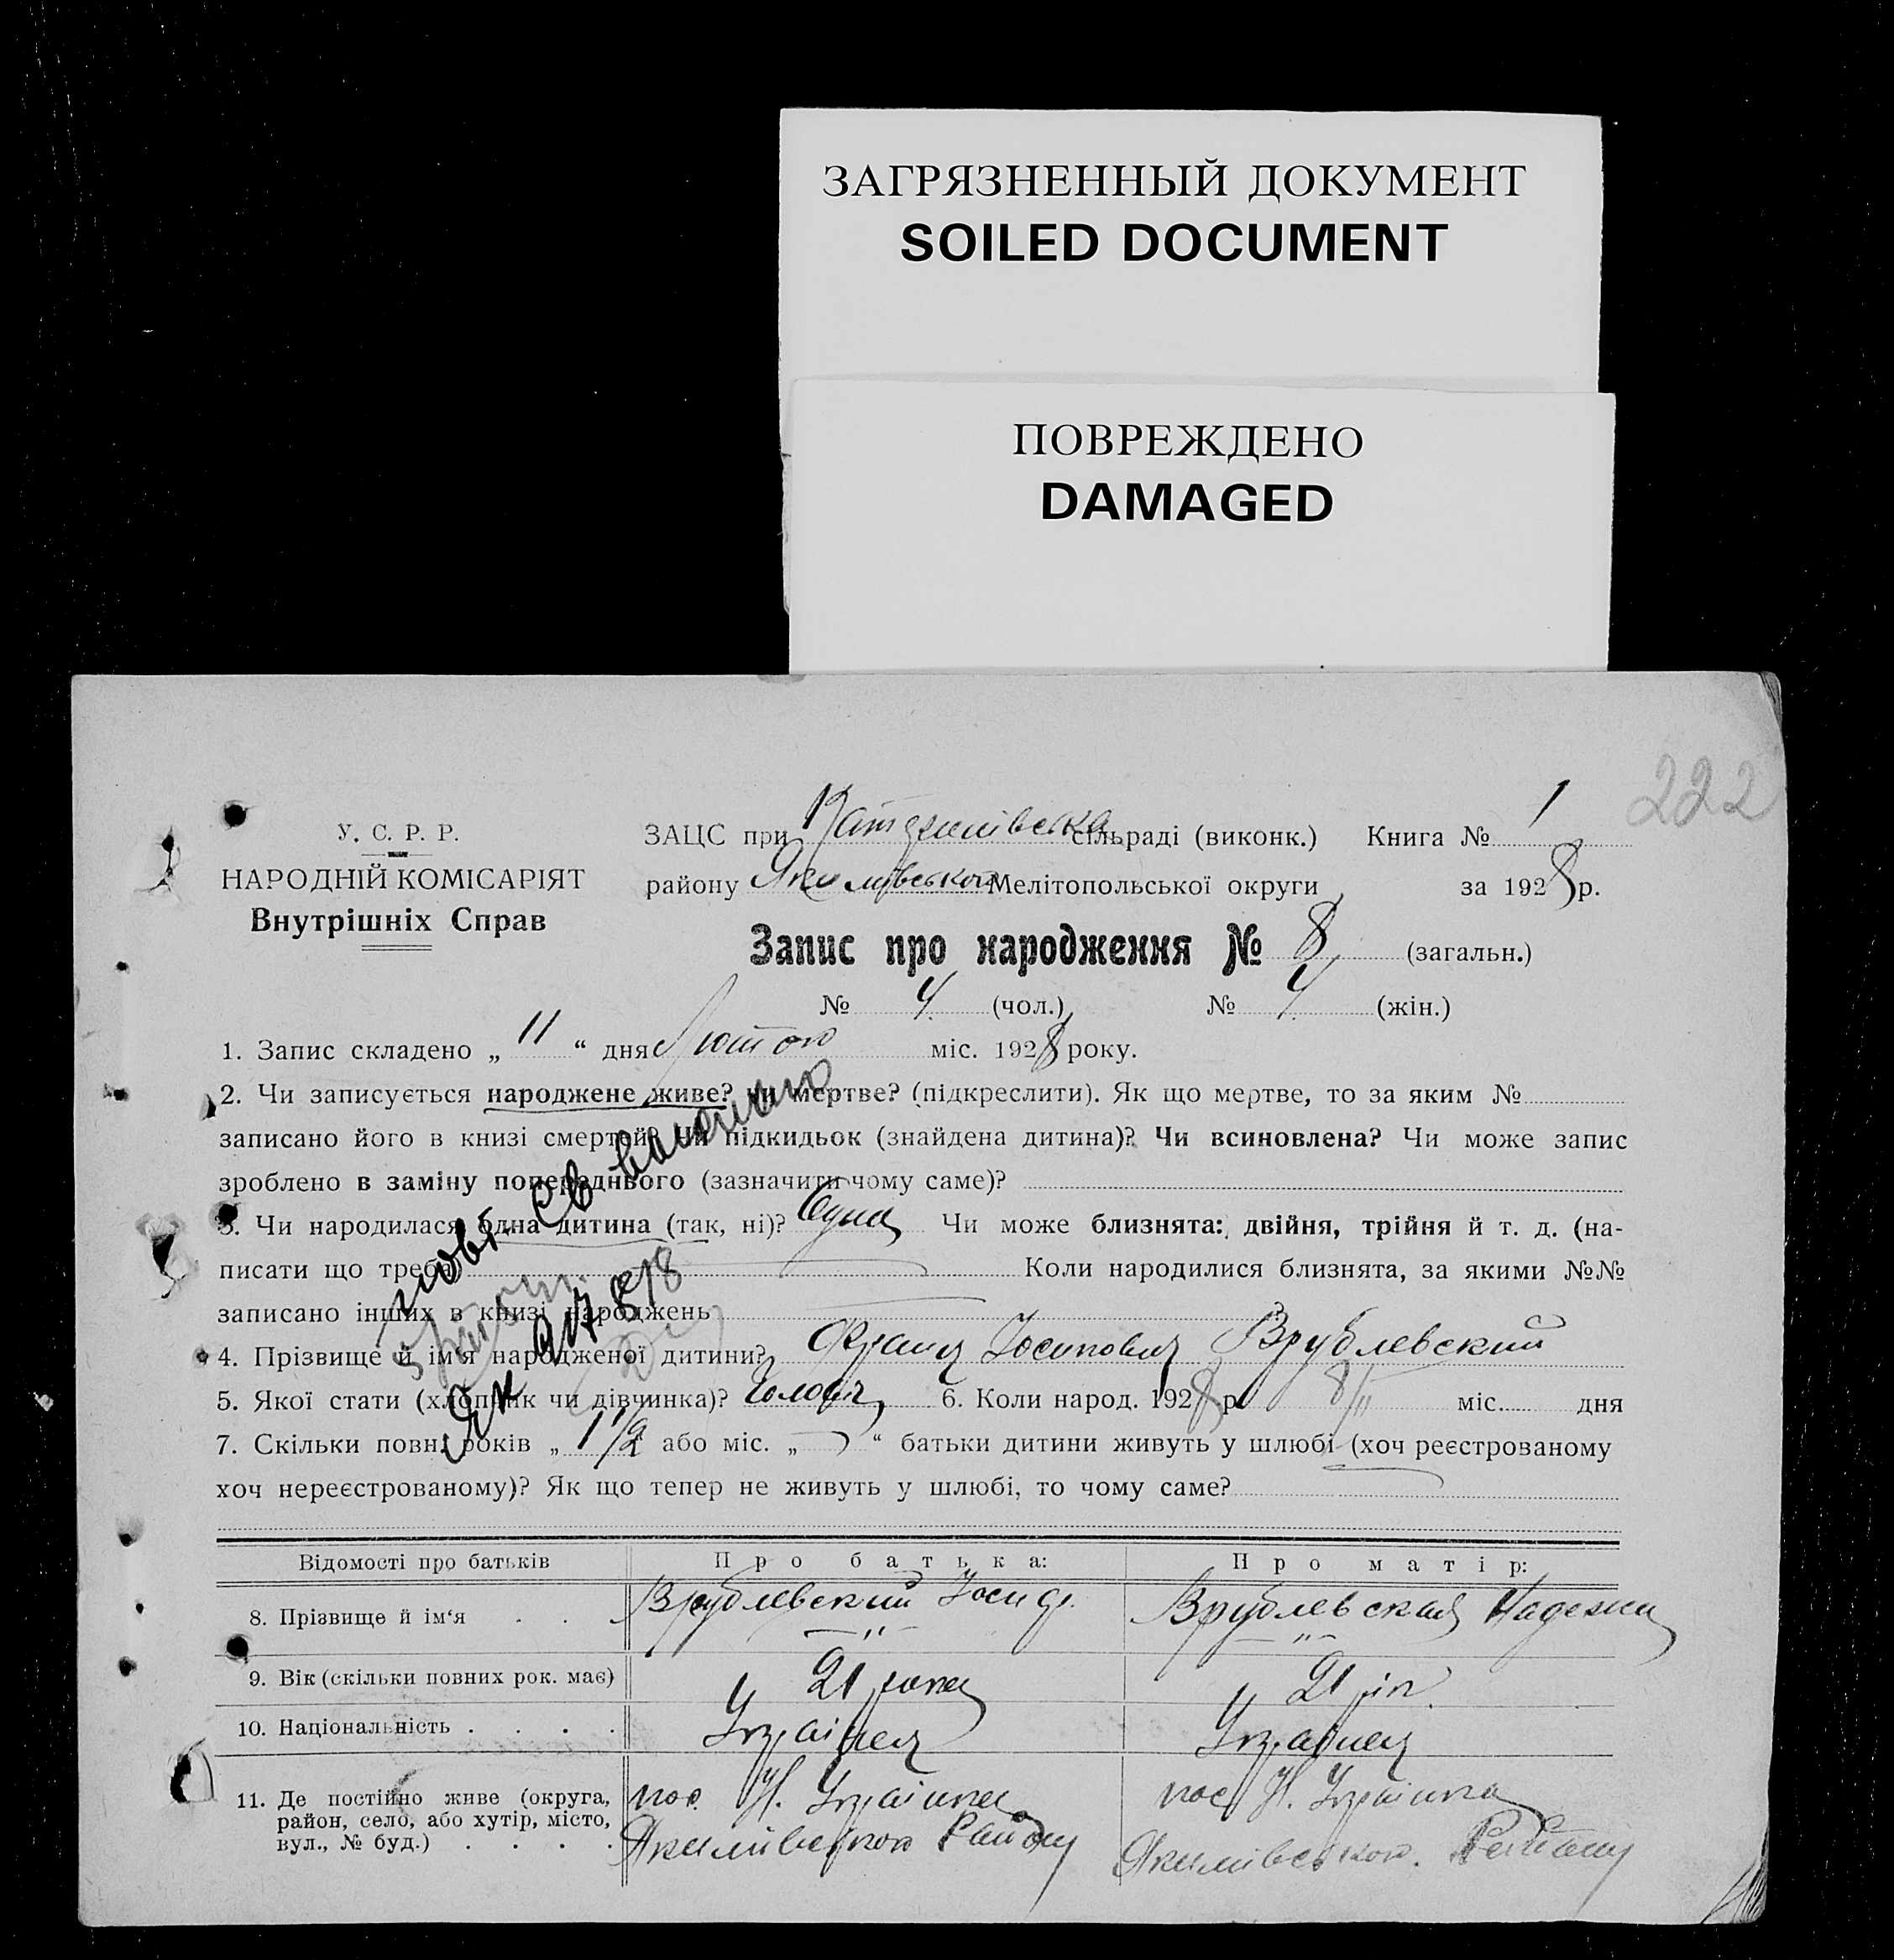 ЗАГРЯЗНЕННЫЙ ДОКУМЕНТ
SOILED DOCUMENT
ПОВРЕЖДЕНО
DAMAGED
222
У. С. Р. Р.
НАРОДНІЙ КОМІСАРІЯТ
Внутрішніх Справ
ЗАЦС при сільраді (виконк.) Книга № 1
району Якимівського Мелітопольської округи за 1928 р.
Запис про народження № 8 (загальн.)
№ 4 (чол.) № 4 (жін.)
1. Запис складено „ 11 “ дня Лютого міс. 1928 року.
2. Чи записується народжене живе? чи мертве? (підкреслити). Як що мертве, то за яким №
записано його в книзі смертей? Чи підкидьок (знайдена дитина)? Чи всиновлена? Чи може запис
зроблено в заміну попереднього (зазначити чому саме)?
3. Чи народилася одна дитина (так, ні)? Одна Чи може близнята: двійня, трійня й т. д. (на-
писати що треба) Коли народилися близнята, за якими №№
записано інших в книзі народжень
4. Прізвище й ім'я народженої дитини? Франц Йосипович Врублевский
5. Якої стати (хлопчик чи дівчинка)? Чоловіч 6. Коли народ. 1928 р. 8/II міс. дня
7. Скільки повн. років „ 1 1/2 “ або міс. „ “ батьки дитини живуть у шлюбі (хоч реєстрованому
хоч нереєстрованому)? Як що тепер не живуть у шлюбі, то чому саме?
Відомості про батьків Про батька: Про матір:
8. Прізвище й ім'я . . Врублевский Йосип Врублевская Надежда
— „ — — „ —
9. Вік (скільки повних рок. має) 21 21 літ
10. Національність . . . . Українец Украінец
11. Де постійно живе (округа,
район, село, або хутір, місто,
вул., № буд.) . . . .
пос. Н. Українка пос. Н. Українка
Якимівського Району Якимівського Району